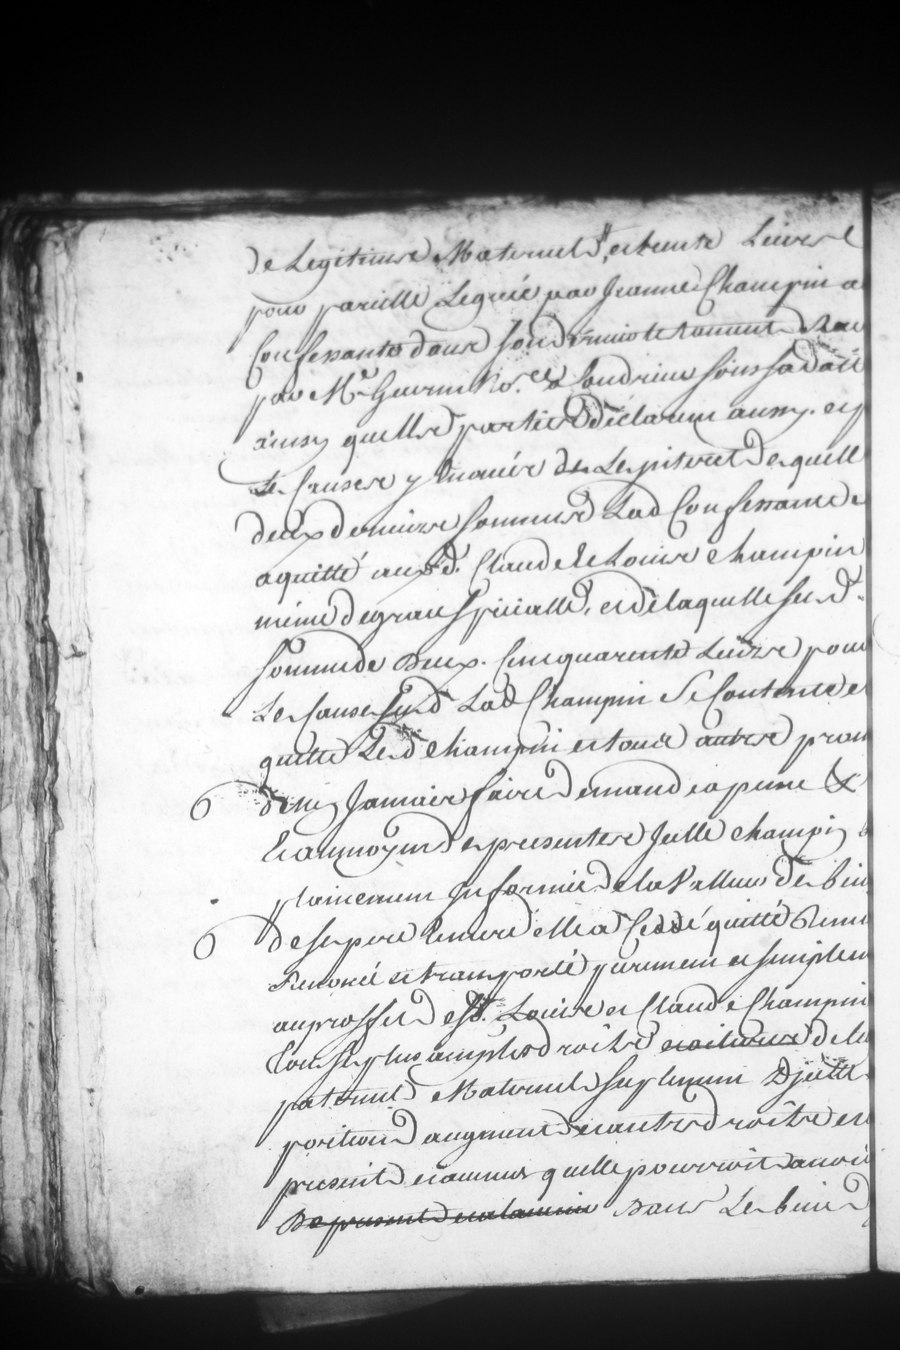 de Legitime Maternel, et trente Livres
pour pareille Leguée par Jeanne Champin a
Confessante dans son dernier testament Receu
par Mr Guerin No.re a sous sa datte
ainsy quelles parties déclarent aussy. et p
Les Causes y Enoncés de Lesquelles
deux dernieres sommes Lad Confessante
aquitté auxd. Claude et Louise Champin
meme de grace specialle, et de laquelle susd.
somme de Deux Cent quarente Livres pour
Les Causes susd Lad Champin Se Contente et
quitte Lesd Champin et tous autres prom
de ne Jamais faire demande a peine &
Et au moyen des presentes Jcelle Champin
plainement Informée de la Valleur des biens
de ses pere Et mere elle a Ceddé quitté Remis
Renoncé et transporté purement et simplem
au proffit desd. Louise et Claude Champin
tous ses plus amples droits de
paternel Maternel suplement Djcelle
portion d augment et autres droits et
presents et avenir quelle pourroit avoir
Dans Les biens